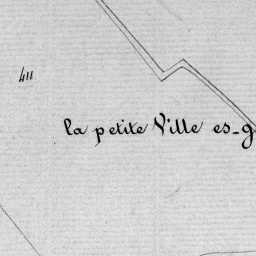 411
la petite Ville es-g